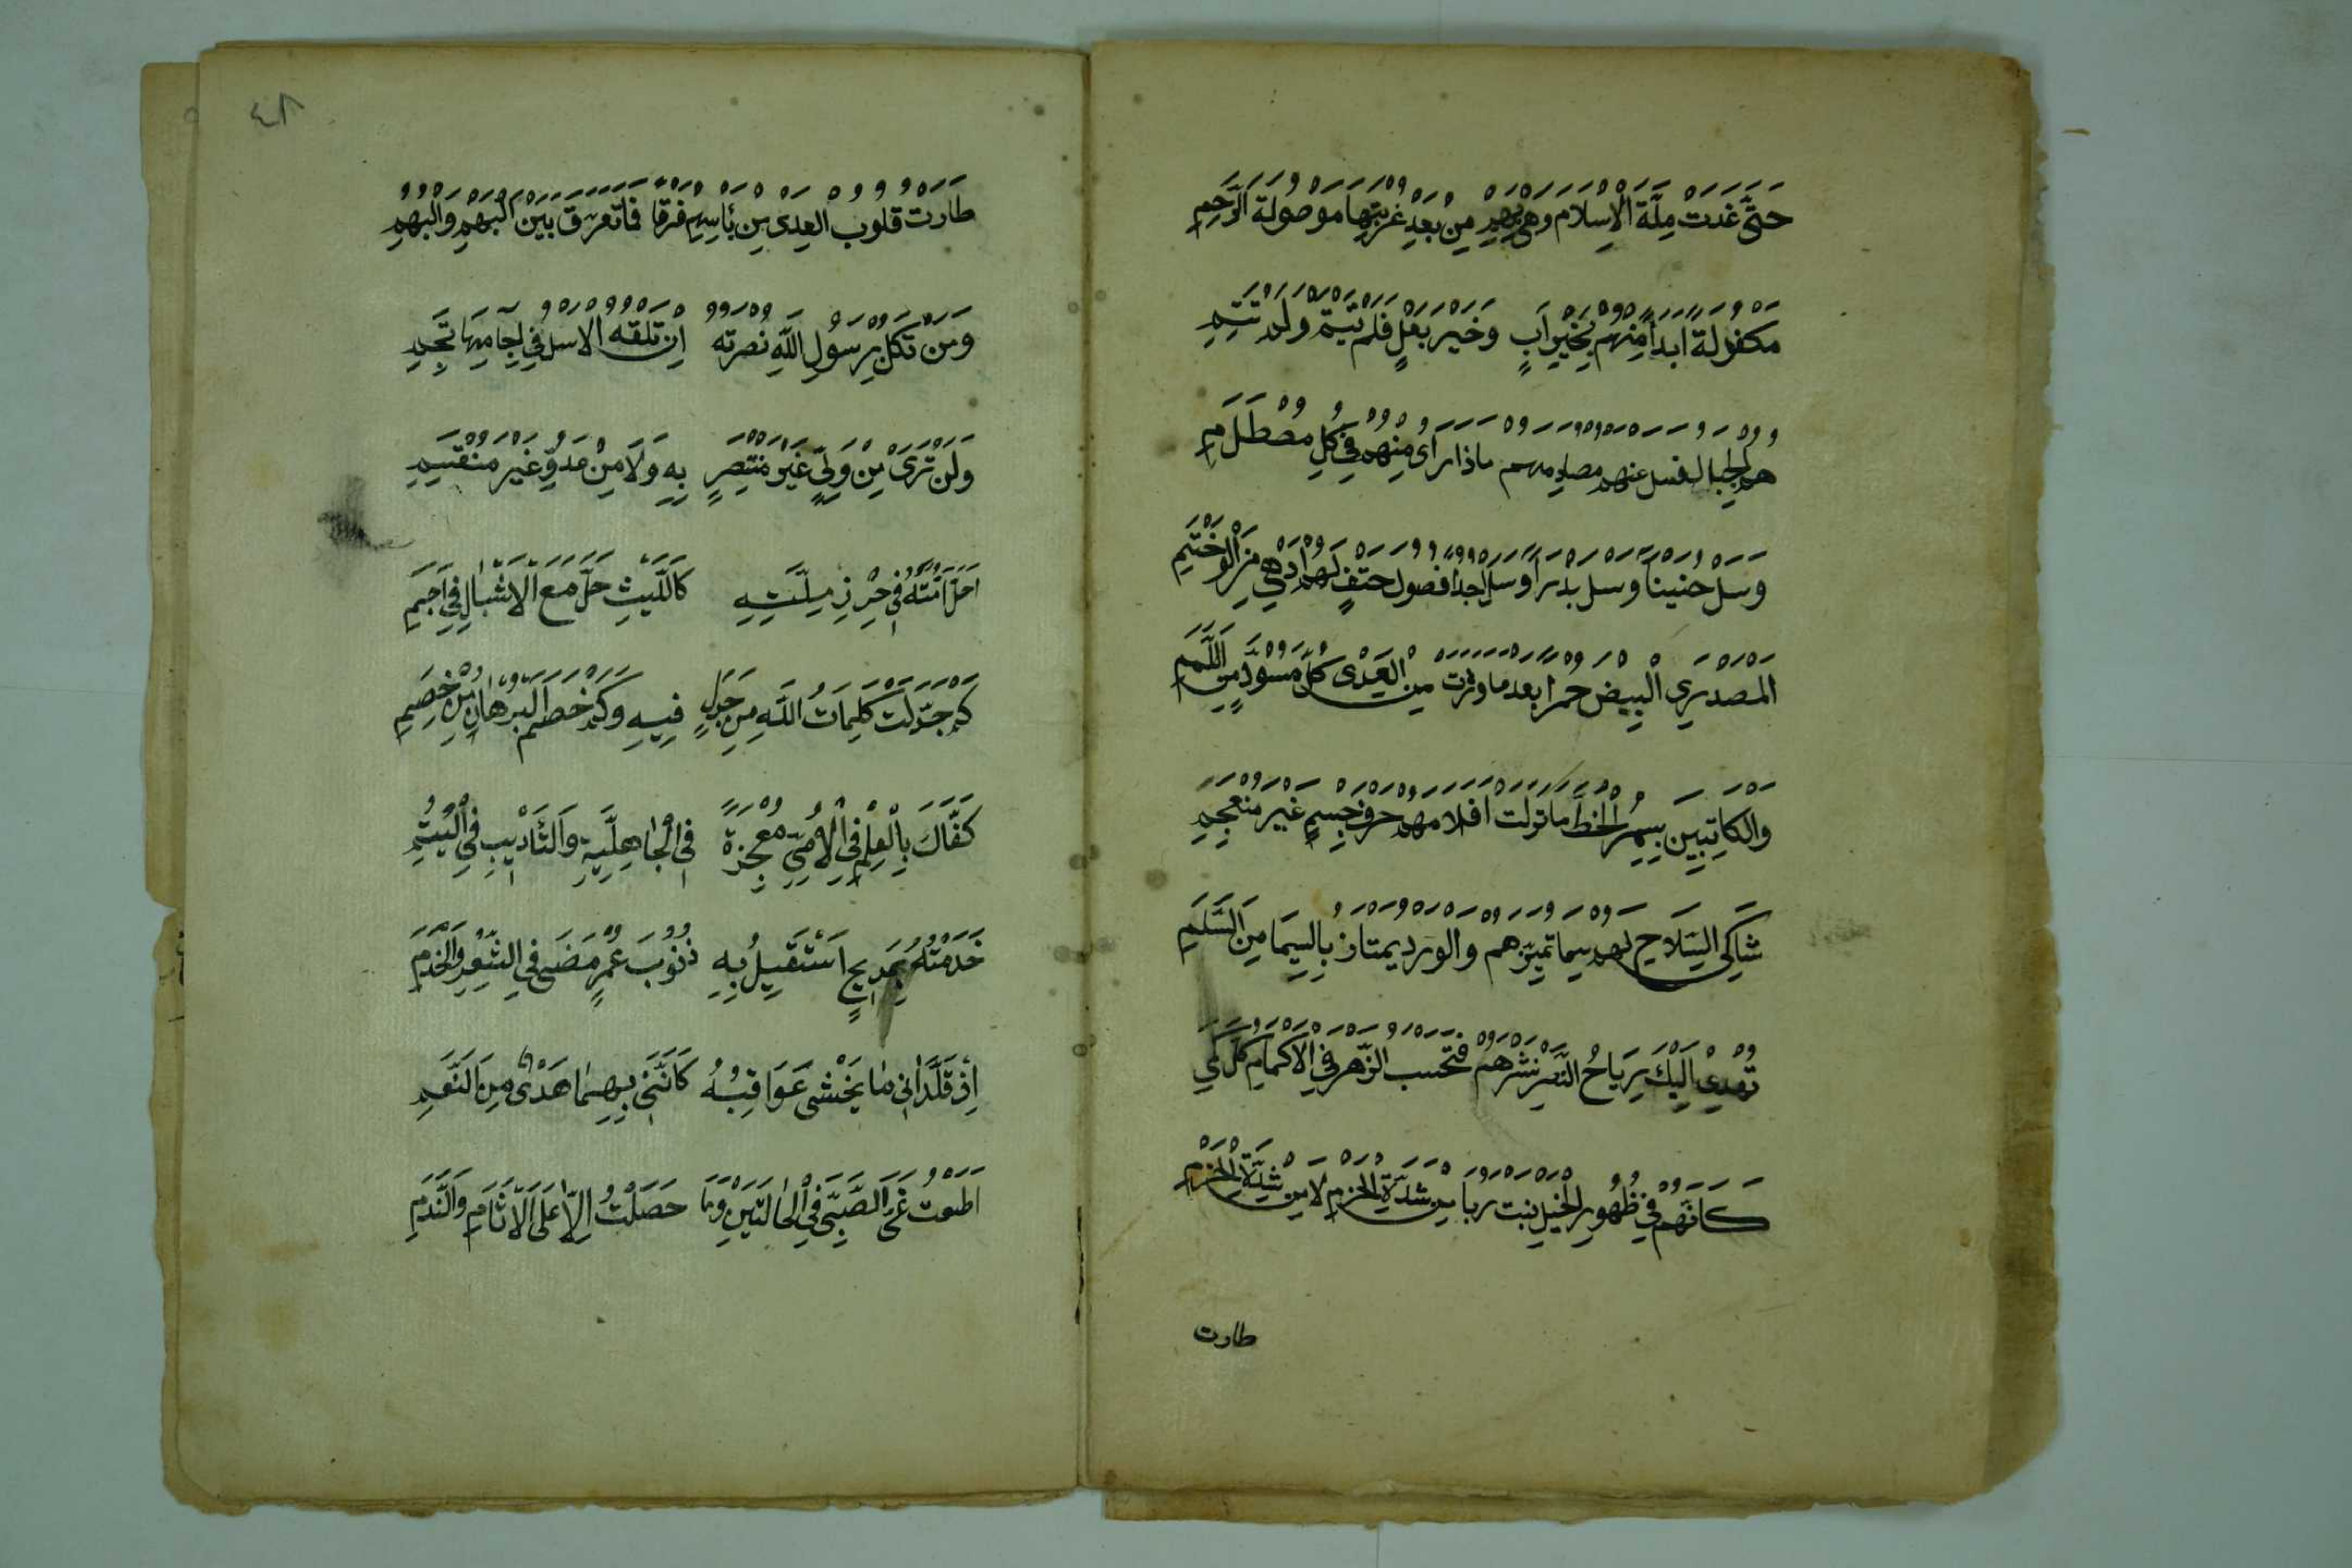 حَتَّى غَدَتْ مِلَّةُ الْاِسْلَامِ وَهْيَ بِهِمْ مِنْ بَعْدِ غُرْبَتِهَا مَوْصُولَةَ الرَّحِمِ
مَكْفُولَةً اَبَدًا مِنْهُمْ بِخَيْرِ اَبٍ وَخَيْرِ بَعْلٍ فَلَمْ تَيْتَمْ وَلَمْ تَئِمِ
هُمُ الْجِبَالُ فَسَلْ عَنْهُمْ مُصَادِمَهُمْ مَاذَا رَاَى مِنْهُمُ فِي كُلِّ مُصْطَدَمِ
وَسَلْ حُنَيْنًا وَسَلْ بَدْرًا وَسَلْ اُحُدًا فُصُولُ حَتْفٍ لَهُمْ اَدْهَى مِنَ الْوَخَمِ
الْمُصْدِرِي الْبِيضِ حُمْرًا بَعْدَ مَا وَرَدَتْ مِنَ الْعِدَى كُلَّ مُسْوَدٍّ مِنَ اللِّمَمِ
وَالْكَاتِبِينَ بِسُمْرِ الْخَطِّ مَا تَرَكَتْ اَقْلَامُهُمْ حَرْفَ جِسْمٍ غَيْرَ مُنْعَجِمِ
شَاكِي السِّلَاحِ لَهُمْ سِيمَا تُمَيِّزُهُمْ وَالْوَرْدُ يَمْتَازُ بِالسِّيمَا مِنَ السَّلَمِ
تُهْدِي اِلَيْكَ رِيَاحُ النَّصْرِ نَشْرَهُمُ فَتَحْسَبُ الزَّهْرَ فِي الْاَكْمَامِ كُلَّ كَمِي
كَاَنَّهُمْ فِي ظُهُورِ الْخَيْلِ نَبْتُ رُبًا مِنْ شِدَّةِ الْحَزْمِ لَا مِنْ شَدَّةِ الْحُزُمِ
طارت
٤٨
طَارَتْ قُلُوبُ الْعِدَى مِنْ بَاْسِهِمْ فَرَقًا فَمَا تُفَرِّقُ بَيْنَ الْبَهْمِ وَالْبُهُمِ
وَمَنْ تَكُنْ بِرَسُولِ اللّٰهِ نُصْرَتُهُ اِنْ تَلْقَهُ الْاُسْدُ فِي آجَامِهَا تَجِمِ
وَلَنْ تَرَى مِنْ وَلِيٍّ غَيْرِ مُنْتَصِرٍ بِهِ وَلَا مِنْ عَدُوٍّ غَيْرِ مُنْقَسِمِ
اَحَلَّ اُمَّتَهُ فِي حِرْزِ مِلَّتِهِ كَاللَّيْثِ حَلَّ مَعَ الْاَشْبَالِ فِي اَجَمِ
كَمْ جَدَّلَتْ كَلِمَاتُ اللّٰهِ مِنْ جَدَلٍ فِيهِ وَكَمْ خَصَمَ الْبُرْهَانُ مِنْ خَصِمِ
كَفَاكَ بِالْعِلْمِ فِي الْاُمِّيِّ مُعْجِزَةً فِي الْجَاهِلِيَّةِ وَالتَّاْدِيبِ فِي الْيُتُمِ
خَدَمْتُهُ بِمَدِيحٍ اَسْتَقِيلُ بِهِ ذُنُوبَ عُمْرٍ مَضَى فِي الشِّعْرِ وَالْخِدَمِ
اِذْ قَلَّدَانِيَ مَا يُخْشَى عَوَاقِبُهُ كَاَنَّنِي بِهِمَا هَدْيٌ مِنَ النَّعَمِ
اَطَعْتُ غَيَّ الصِّبَى فِي الْحَالَتَيْنِ وَمَا حَصَلْتُ اِلَّا عَلَى الْآثَامِ وَالنَّدَمِ